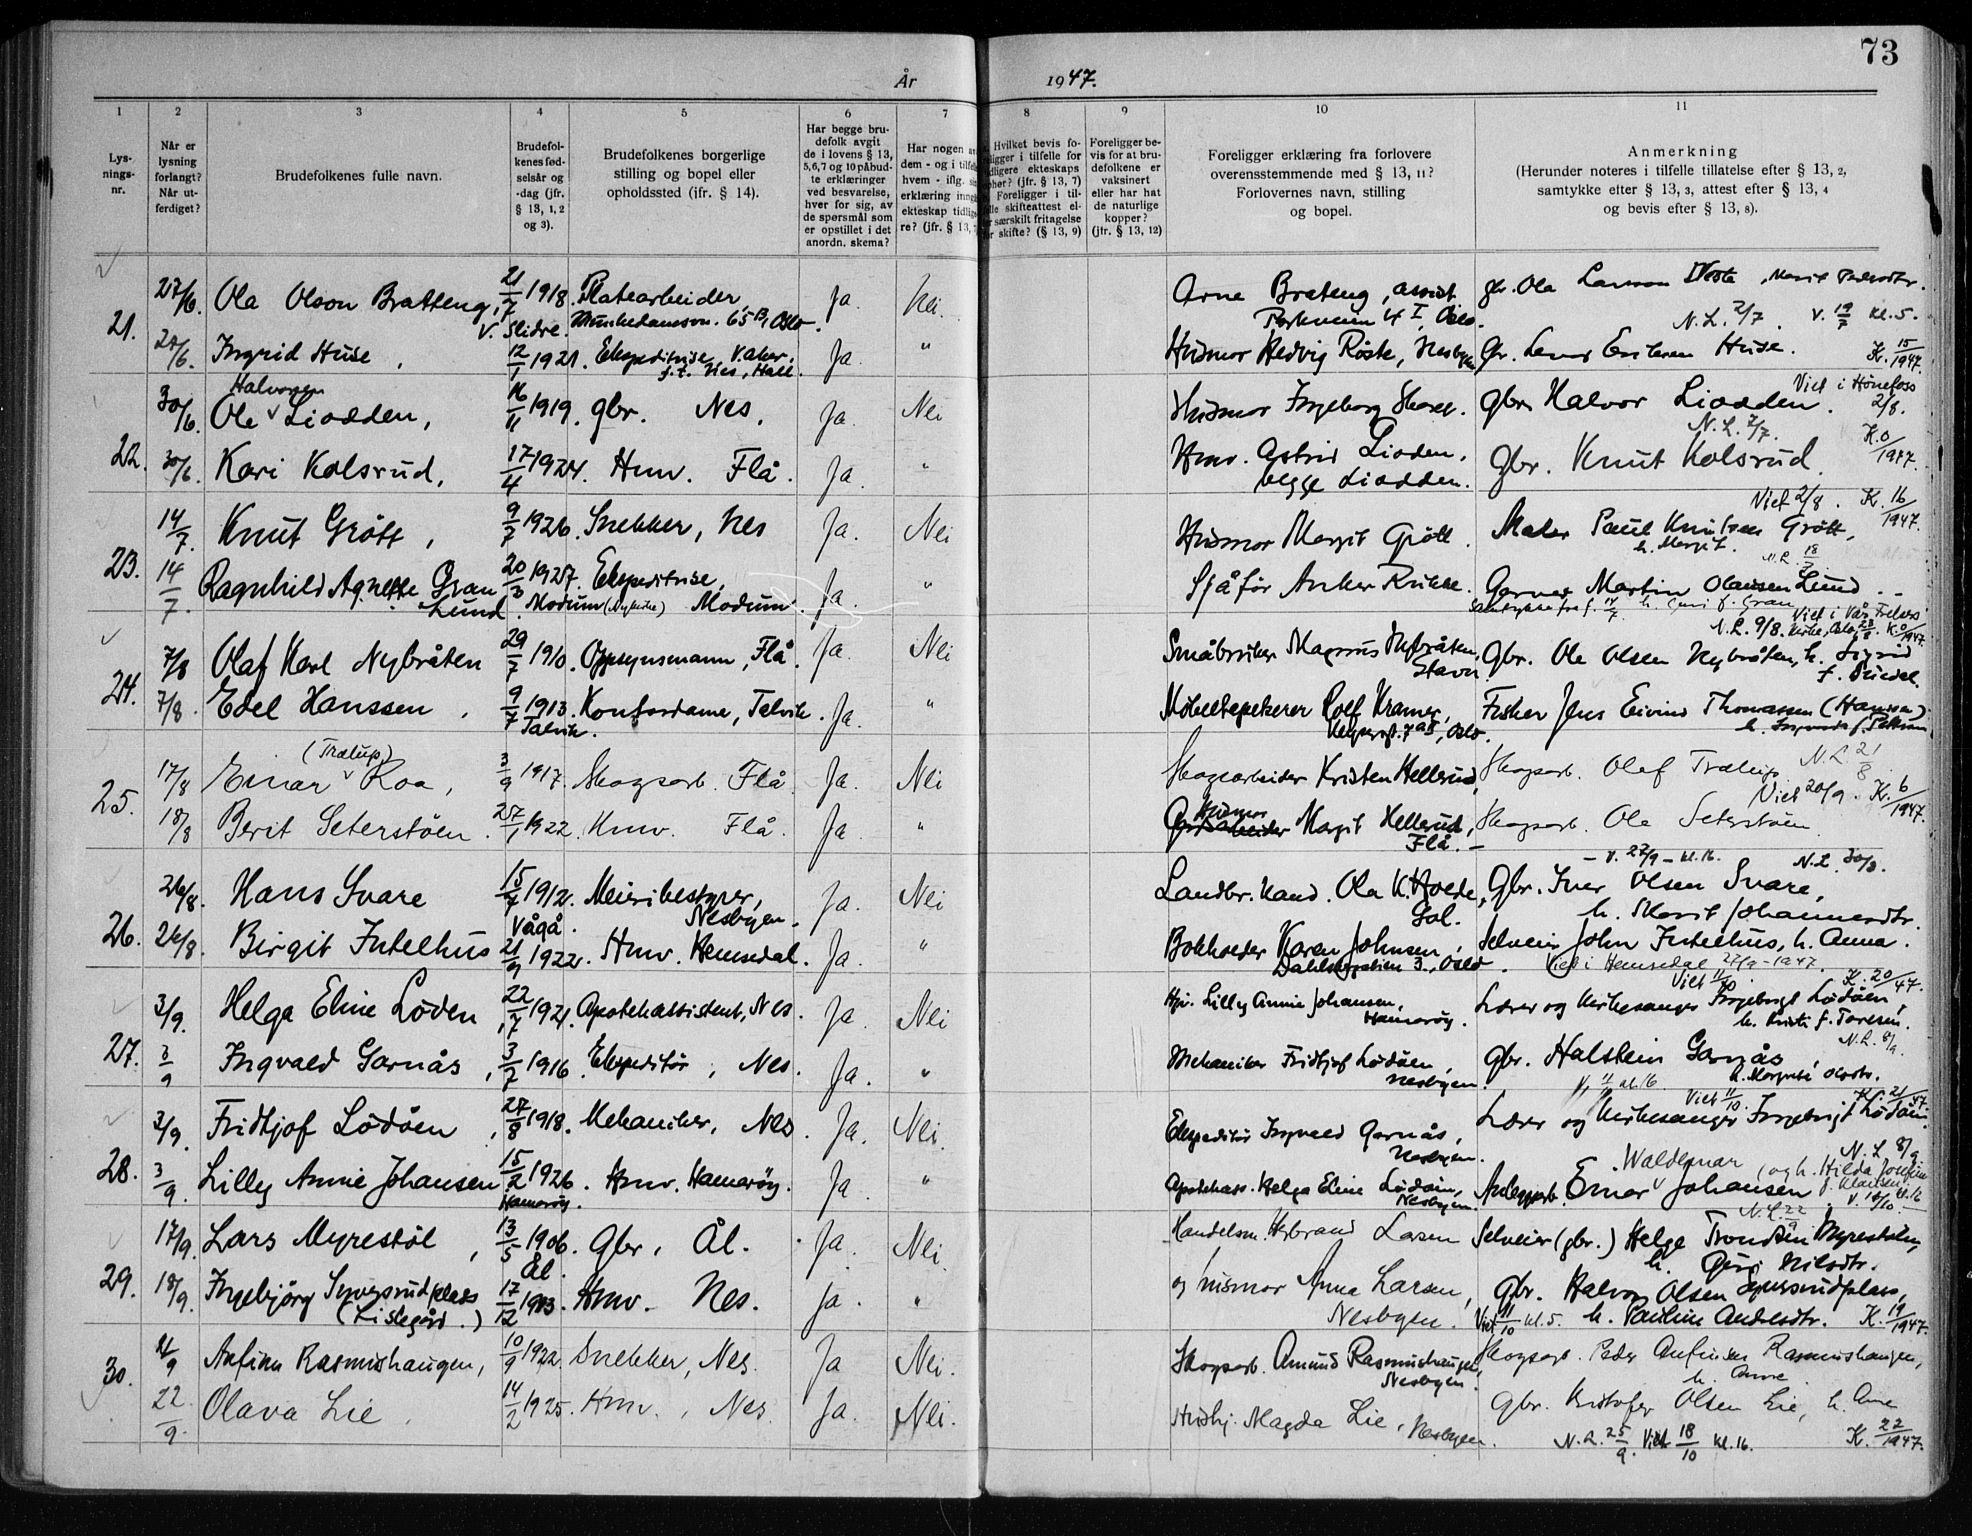 73
År 1947.
1 2 3 4 5 6 7 8 9 10 11
Lys-
nings-
nr.
Når er
lysning
forlangt?
Når ut-
ferdiget?
Brudefolkenes fulle navn.
Brudefol-
kenes fød-
selsår og
-dag (jfr.
§ 13, 1, 2
og 3).
Brudefolkenes borgerlige
stilling og bopel eller
opholdssted (ifr. § 14).
Har begge bru-
defolk avgit
de i lovens § 13,
5,6,7 og 10 påbud-
te erklæringer
ved besvarelse,
hver for sig, av
de spørsmål som
er opstillet i det
anordn. skema?
Har nogen av
dem - og i tilfelle
hvem - iflg. sin
erklæring inngått
ekteskap tidlige-
re? (jfr. § 13, 7
Hvilket bevis fo-
religger i tilfelle for
tidligere ekteskaps
opher? (jfr. § 13, 7)
Foreligger i til-
felle skifteattest el-
er særskilt fritagelse
for skifte? (§ 13, 9)
Foreligger be-
vis for at bru-
defolkene er
vaksinert
eller har hat
de naturlige
kopper?
(jfr. § 13, 12)
Foreligger erklæring fra forlovere
overensstemmende med § 13, 11?
Forlovernes navn, stilling
og bopel.
Anmerkning
(Herunder noteres i tilfelle tillatelse efter § 13, 2,
samtykke efter § 13, 3, attest efter § 13, 4
og bevis efter § 13, 8).
21. 27/6. Ola Olson Bratteng, 21/7 1918. Platearbeider, Ja. Nei. Arne Brateng, assist. gbr. Ola Larsson
V. Slidre. Munkedamsvn. 65 B, Oslo. 4 I, Oslo. N.L. 2/7. V. 19/7 kl. 5.
27/6. Ingrid Huse, 12/1 1921. Ekspeditrise, V. Aker. Ja. " Husmor Hedvig Røste, Nesbyen Gbr. Huse. K. 15/1947.
f.t. Nes, Hall.
Halvorsen Viet i Hønefoss
22. 30/6. Ole Liodden, 16/11 1919. gbr. Nes. Ja. Nei Husmor Ingeborg gbr. Halvor Liodden. 2/8.
N.L. 2/7.
30/6. Kari Kolsrud, 17/4 1924. Hmv. Flå. Ja. " Hmv. Astrid Liodden. gbr. Knut Kolsrud. K. 0/1947.
begge Liodden.
Viet 2/8. K. 16/1947.
23. 14/7. Knut Grøtt, 9/7 1926. Snekker, Nes Ja. Nei Husmor Margit Grøtt. Maler Paul Knutsen Grøtt,
h. Margit. N.L. 18/7
14/7. Ragnhild Agnethe Gran 20/3 1927. Ekspeditrise, Ja. " Sjåfør Anker Garver Martin Olausen Lund
Lund. Modum (Nykirke) Modum. f. Gran
Viet i Vår Frelsers
N.L. 9/8. Kirke, Oslo, 23/8. K. 0/1947.
24. 7/8 Olaf Karl Nybråten 29/7 1910. Oppsynsmann, Flå. Ja. Nei Småbruker Magnus Nybråten, Gbr. Ole Olsen Nybråten, h. Sigrid
Stavn.
7/8. Edel Hanssen, 9/7 1913. Kontordame, Talvik. Ja. " Møbeltapetserer Rolf Kramer, Fisker Jens Eivind Thomassen (Hanssen)
Talvik. Oslo.
(Trælup) N.L. 21/8
25. 17/8 Einar Roa, 3/9 1917. Skogsarb. Flå. Ja. Nei Skogsarbeider Kristen Hellerud, Skogsarb. Olaf Trælup.
Viet 20/9. K. 6/1947.
18/8 Berit Seterstøen. 27/1 1922. Hmv. Flå. Ja. " Husmor Margit Hellerud, Skogsarb. Ole Seterstøen
Flå. -
- V. 27/9 - kl. 16. N.L. 30/8.
26. 26/8. Hans Svare 15/7 1912. Meieribestyrer, Ja. Nei Landbr. kand. Ola K. Hoede, Gbr. Iver Olsen Svare,
Vågå. Nesbyen. Gol. h. Marit Johannesdtr.
26/8. Birgit Intelhus 21/9 1922. Hmv. Hemsedal. Ja. " Bokholder Karen Johnsen, Selveier John Intelhus, h. Anna.
3, Oslo. Viet i Hemsedal 27/9 - 1947.
Viet 11/10 K. 20/47.
27. 3/9. Helga Eline Løden, 22/7 1921. Apotekassistent, Nes. Ja. Nei Hjv. Lilly Annie Johansen, Lærer og kirkesanger Ingebrigt Lødøen,
Hamarøy. h. Kristi f. Toresen.
N.L. 8/9.
3/9 Ingvald Garnås, 3/7 1916. Ekspeditør, Nes. Ja. " Mekaniker Fridtjof Lødøen, gbr. Halstein Garnås,
Nesbyen. V. 11/10 kl. 16. h. Margit Olsdtr.
Viet 11/10. K. 21/47.
28. 3/9. Fridtjof Lødøen, 27/8 1918. Mekaniker, Nes. Ja. Nei. Ekspeditør Ingvald Garnås, Lærer og kirkesanger Ingebrigt Lødøen.
Nesbyen. N.L. 8/9.
3/9. Lilly Annie Johansen 15/2 1926. Hmv. Hamarøy. Ja. " Apotekass. Helga Eline Lødøen, Anleggsarb. Einar Waldemar Johansen, og h. Hilda
Hamarøy. Nesbyen. V. 11/10. kl. 16
N.L. 22/9
29. 17/9. Lars Myrestøl, 13/5 1906. Gbr, Ål. Ja. Nei. Handelsm. Herbrand Larsen Selveier (gbr.) Helge Trondsen Myrestølen,
Ål. h. Guri Nilsdtr.
18/9. Ingebjørg Syversrudplass 17/12 1913. Hmv. Nes. Ja. " og husmor Anna Larsen, Gbr. Halvor Olsen Syversrudplass,
(Lislegård.) Nesbyen. Viet 11/10 kl. 5. h. Pauline Andersdtr. K. 19/1947.
30. 22/9 Anfinn Rasmushaugen, 10/9 1922. Snekker, Nes. Ja Nei. Skogsarb. Amund Rasmushaugen, Skogsarb. Peder Anfinsen Rasmushaugen,
Nesbyen. h. Anne
22/9. Olava Lie. 14/2 1925. Hmv., Nes. Ja. Nei. Hushj. Magda Lie, Nesbyen. Gbr. Kristofer Olsen Lie, h. Ane
N.L. 25/9. Viet 18/10 kl. 16. K. 22/1947.